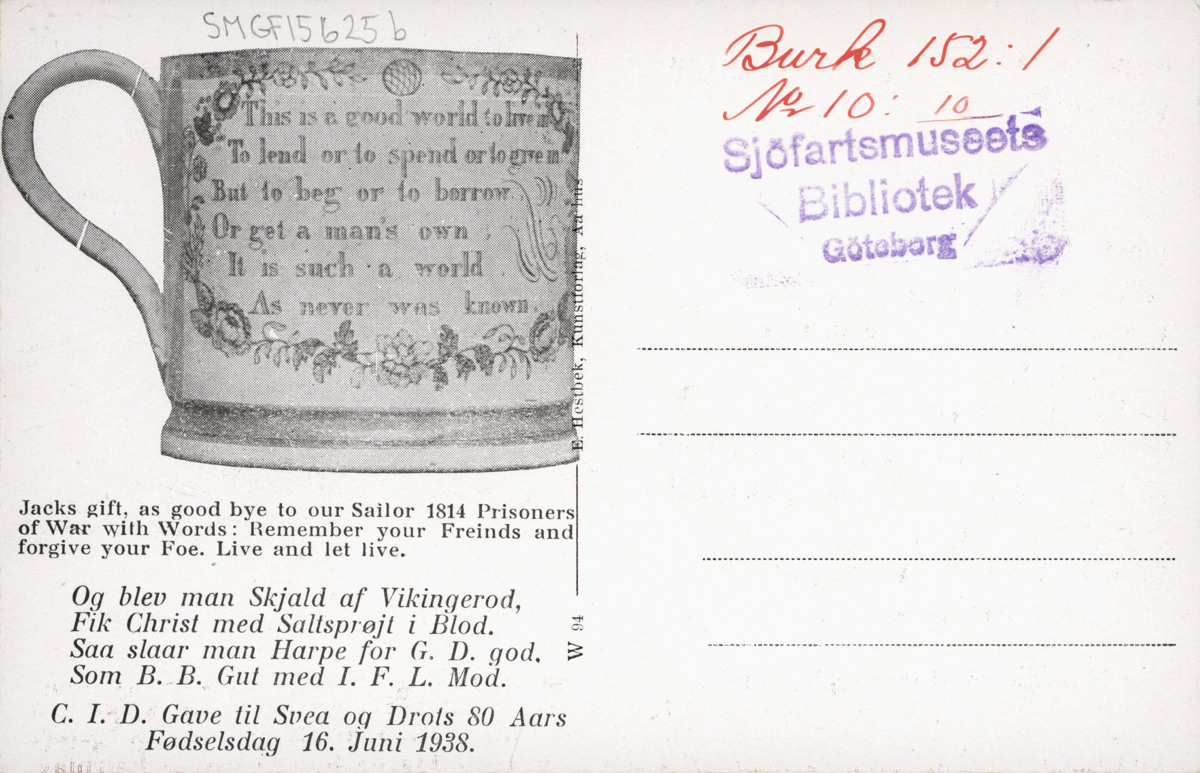 SMGF15625b
This is a good world to live in
To lend or to spend or to give in
But to beg or to borrow
Or get a man's own
It is such a world
As never was known
Jacks gift, as good bye to our Sailor 1814 Prisoners
of War with Words: Remember your Freinds and
forgive your Foe. Live and let live.
Og blev man Skjald af Vikingerod,
Fik Christ med Saltsprøjt i Blod.
Saa slaar man Harpe for G. D. god,
Som B. B. Gut med I. F. L. Mod.
C. I. D. Gave til Svea og Drots 80 Aars
Fødselsdag 16. Juni 1938.
E. Hestbek, Kunstforlag, Aarhus
W 94
Burk 152:1
No 10: 10
Sjöfartsmuseets
Bibliotek
Göteborg